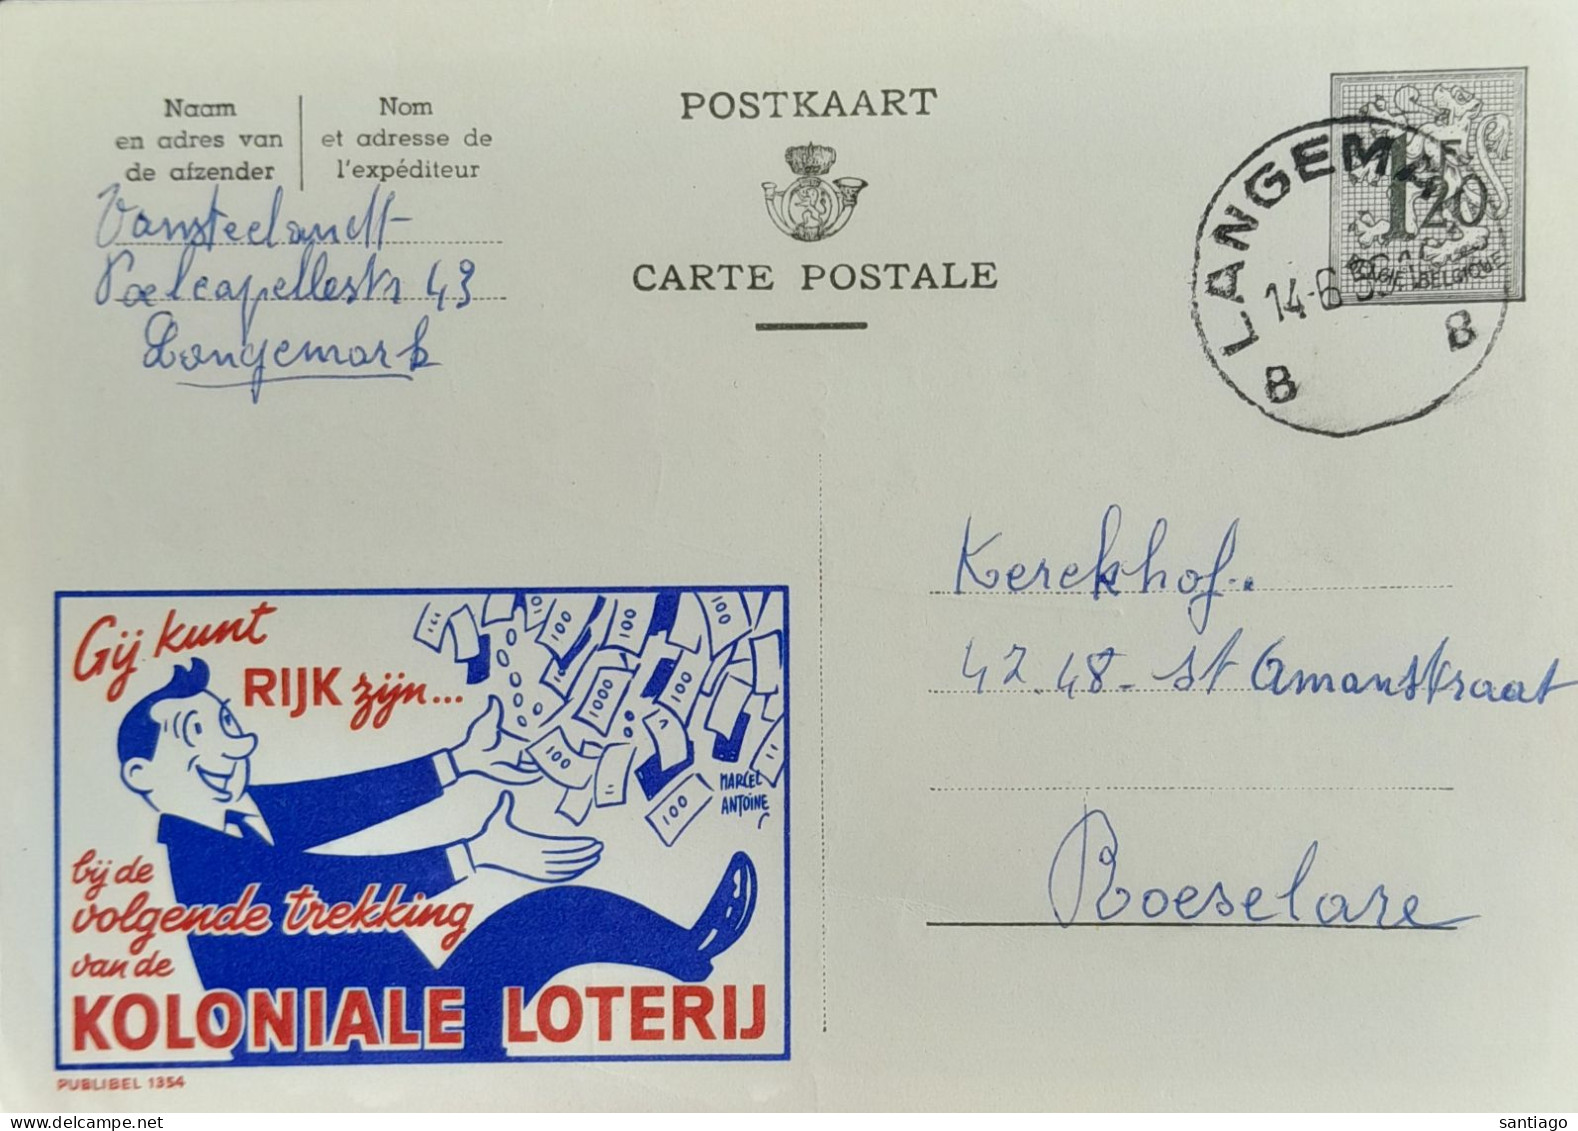 Naam
en adres van
de afzender
Nom
et adresse de
l'expéditeur
Vansteelandt
Poelcapellestr 43
Langemark
POSTKAART
CARTE POSTALE
1F20
BELGIE-BELGIQUE
LANGEMARK
14-6
8 8
Kerckhof.
42.48 - St Amanstraat
Roeselare
Gij kunt
RIJK zijn...
100 100 100 1000 100 100 100
MARCEL
ANTOINE
bij de
volgende trekking
van de
KOLONIALE LOTERIJ
PUBLIBEL 1354
santiago